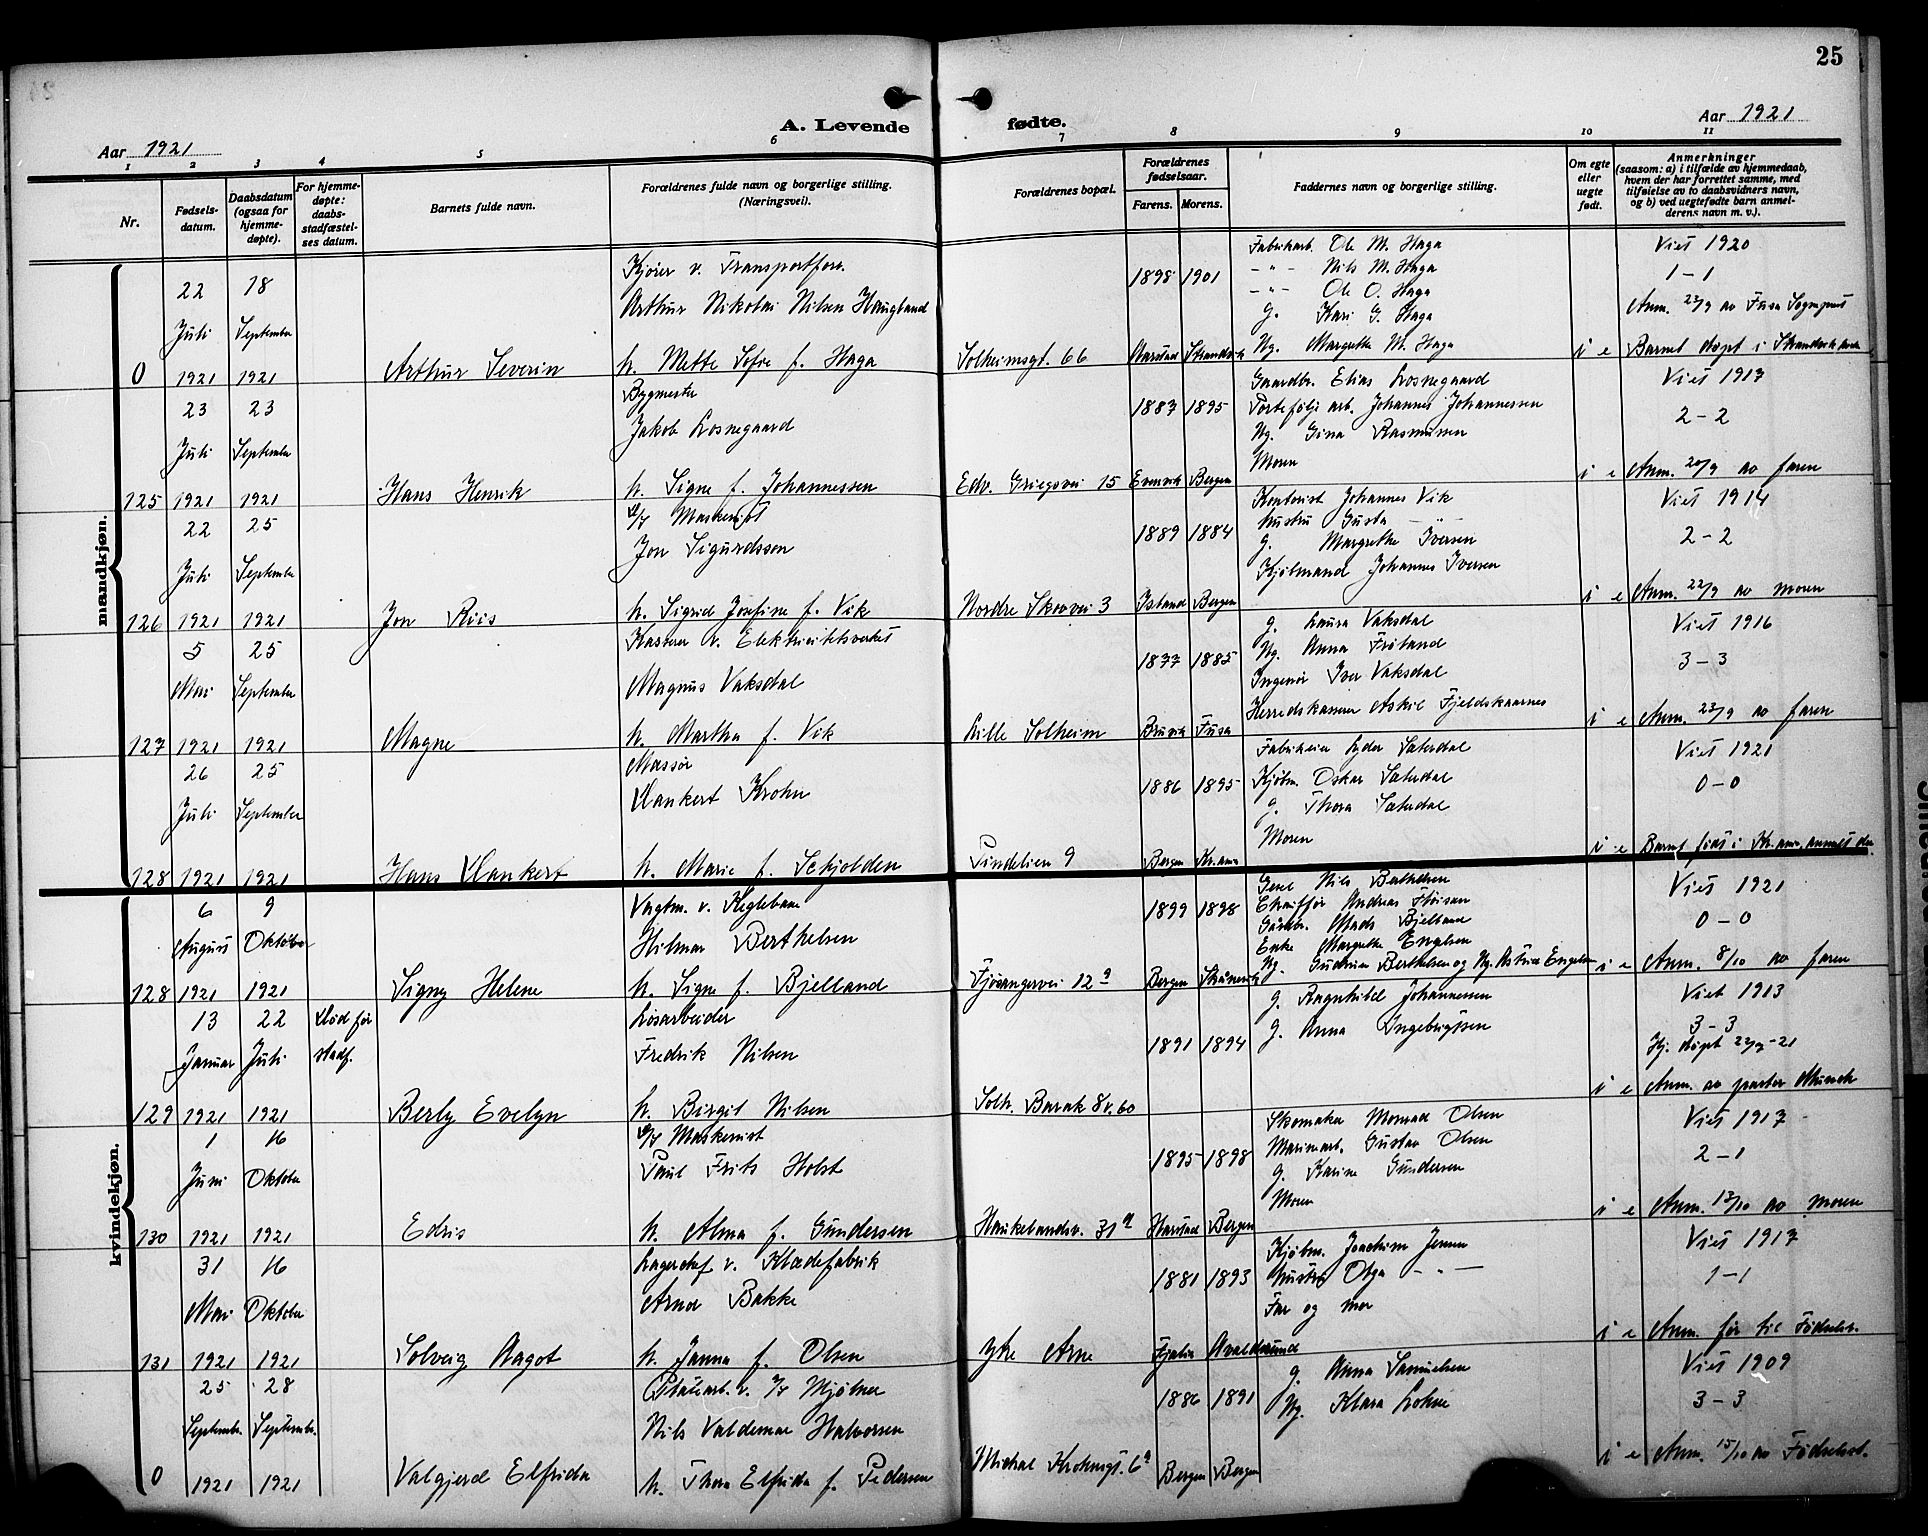 25
A. Levende fødte.
Aar 1921
Aar 1921
1 2 3 4 5 6 7 8 9 10 11
Nr.
Fødsels-
datum.
Daabsdatum
(ogsaa for
hjemme-
døpte).
For hjemme-
døpte:
daabs-
stadfæstel-
ses datum.
Barnets fulde navn.
Forældrenes fulde navn og borgerlige stilling.
(Næringsvei).
Forældrenes bopæl.
Forældrenes
fødselsaar.
Farens. Morens.
Faddernes navn og borgerlig stilling.
Om egte
eller
uegte
født.
Anmerkninger
(saasom: a) i tilfælde av hjemmedaab,
hvem der har forrettet samme, med
tilføielse av to daabsvidners navn,
og b) ved uegtefødte barn anmel-
derens navn m. v.).
mandkjøn.
0
22 Juli 1921
18 September 1921
Arthur Severin
Kjører v. Transportforr.
Arthur Nikolai Nilsen Haugland
h. Mette Sofie f. Haga
Solheimsgt. 66
1898 1901
Aarstad Strandvik
Fabrikarb. Ole M. Haga
-"- Nils M. Haga
-"- Ole O. Haga
g. Kari G. Haga
Ug. Margrethe M. Haga
i e
Viet 1920
1-1
Anm. 23/9 av Fusa Sogneprest
Barnet døpt i Strandvik
125
23 Juli 1921
23 September 1921
Hans Henrik
Bygmester
Jakob Losnegaard
h. Signe f. Johannessen
Edv. Griegsvei 15
1887 1895
Evenvik Bergen
Gaardbr. Elias Losnegaard
Portefølje arb. Johannes Johannessen
Ug. Gina Rasmussen
Moren
i e
Viet 1917
2-2
Anm. 20/9 av faren
126
22 Juli 1921
25 September 1921
Jon Riis
d/s Maskinist
Jon Sigurdsson
h. Sigrid Josefine f. Vik
Nordre Skovvei 3
1889 1884
Island Bergen
Kontorist Johannes Vik
hustru Gusta -"-
g. Margrethe Iversen
Kjølmand Johannes Iversen
i e
Viet 1914
2-2
Anm. 22/9 av moren
127
5 Mai 1921
25 September 1921
Magne
Kasserer v. Elektricitetsverket
Magnus Vaksdal
h. Martha f. Vik
Lille Solheim
1877 1885
Bruvik Fusa
g. Laura Vaksdal
Ug. Anna Frøland
Ingeniør Iver Vaksdal
Herredskasserer Askil Fjeldskaarnes
i e
Viet 1916
3-3
Anm. 23/9 av faren
128
26 Juli 1921
25 September 1921
Hans Hankert
Massør
Hankert Krohn
h. Marie f. Schjolden
Lindelien 9
1886 1895
Bergen Kr.ania
Fabrikeier Lyder Sæterdal
Kjøbm. Oskar Sæterdal
g. Thora Sæterdal
Moren
i e
Viet 1921
0-0
Barnet født i Kr.ania, anmeldt der
kvindekjøn.
128
6 August 1921
9 Oktober 1921
Signy Helene
Vagtm. v. Keglebane
Hilmar Berthelsen
h. Signe f. Bjelland
Fjøsangervei 12 a
1899 1898
Bergen Skånevik
Nils Berthelsen
Chauffør Andreas Fløisan
Gårdbr. Mads Bjelland
Enke Margrethe Engelsen
Ug. Gudrun Berthelsen og Ug. Astrid Engelsen
i e
Viet 1921
0-0
Anm. 8/10 av faren
129
13 Januar 1921
22 Juli 1921
Død før
stadf.
Berly Evelyn
Løsarbeider
Fredrik Nilsen
h. Birgit Nilsen
Solh. Barak 8 v. 60
1891 1894
g. Ragnhild Johannessen
g. Anna Ingebrigtsen
i e
Viet 1913
3-3
Hj. døpt 22/7-21
Anm. av pastor Munch
130
1 Juni 1921
16 Oktober 1921
Edris
d/s Maskinist
Paul Frits Holst
h. Alma f. Gundersen
Haukelandsv. 31 a
1895 1898
Harstad Bergen
Skomaker Monrad Olsen
Marinearb. Gustav Olsen
g. Karine Gundersen
Moren
i e
Viet 1917
2-1
Anm. 13/10 av moren
131
31 Mai 1921
16 Oktober 1921
Solveig Aagot
Lagerchef v. Klædefabrik
Arne Bakke
h. Janna f. Olsen
ytre Arne
1881 1893
Fjaler Avaldsund
Kjøbm. Joachim Jensen
hustru Olga -"-
Far og mor
i e
Viet 1917
1-1
Anm. før til Fødselsr.
0
25 September 1921
28 September 1921
Valgjerd Elfrida
Pladearb. v. a/s Mjølner
Nils Valdemar Halvorsen
h. Thora Elfrida f. Pedersen
Michal Krohnsgt. 6 a
1886 1891
Bergen Bergen
g. Anna Samuelsen
Ug. Klara Lohne
i e
Viet 1909
3-3
Anm. 15/10 av Fødselsst.